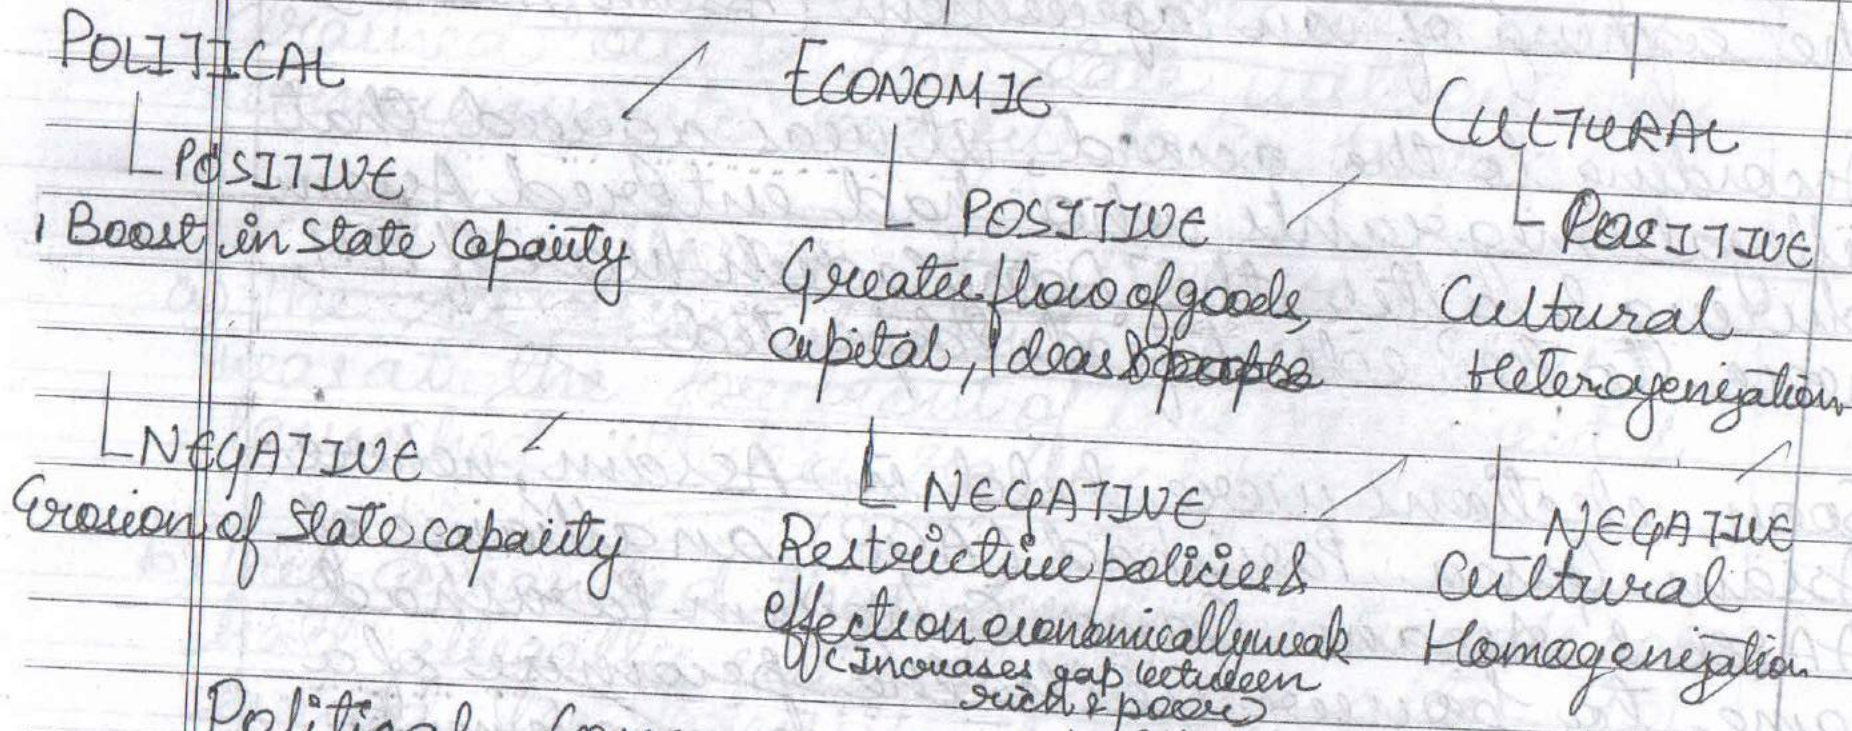 POLITICAL
POSITIVE
Boost in State Capacity
NEGATIVE
Erosion of State capacity
ECONOMIC
POSITIVE
Greater flow of goods,
capital, Ideas & people
NEGATIVE
Restrictive policies &
effect on economically weak
(Increases gap between
rich & poor)
CULTURAL
POSITIVE
Cultural
Heterogenization
NEGATIVE
Cultural
Homogenization
Political